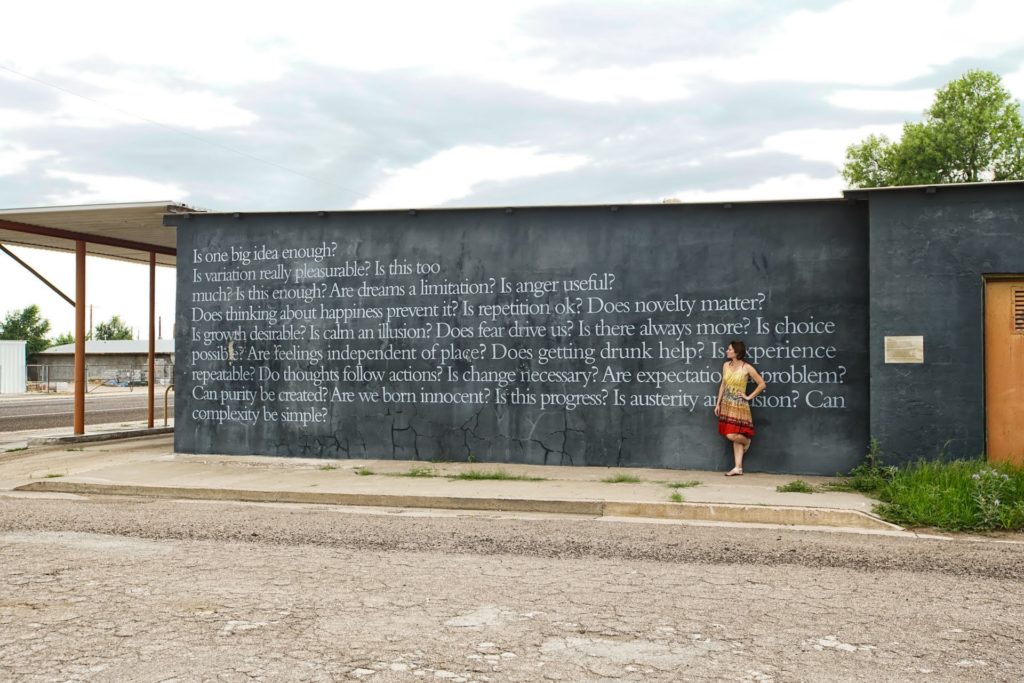 Is one big idea enough?
Is variation really pleasurable? Is this too
much? Is this enough? Are dreams a limitation? Is anger useful?
Does thinking about happiness prevent it? Is repetition ok? Does novelty matter?
Is growth desirable? Is calm an illusion? Does fear drive us? Is there always more? Is choice
possible? Are feelings independent of place? Does getting drunk help? Is experience
repeatable? Do thoughts follow actions? Is change necessary? Are problem?
Can purity be created? Are we born innocent? Is this progress? Is austerity Can
complexity be simple?